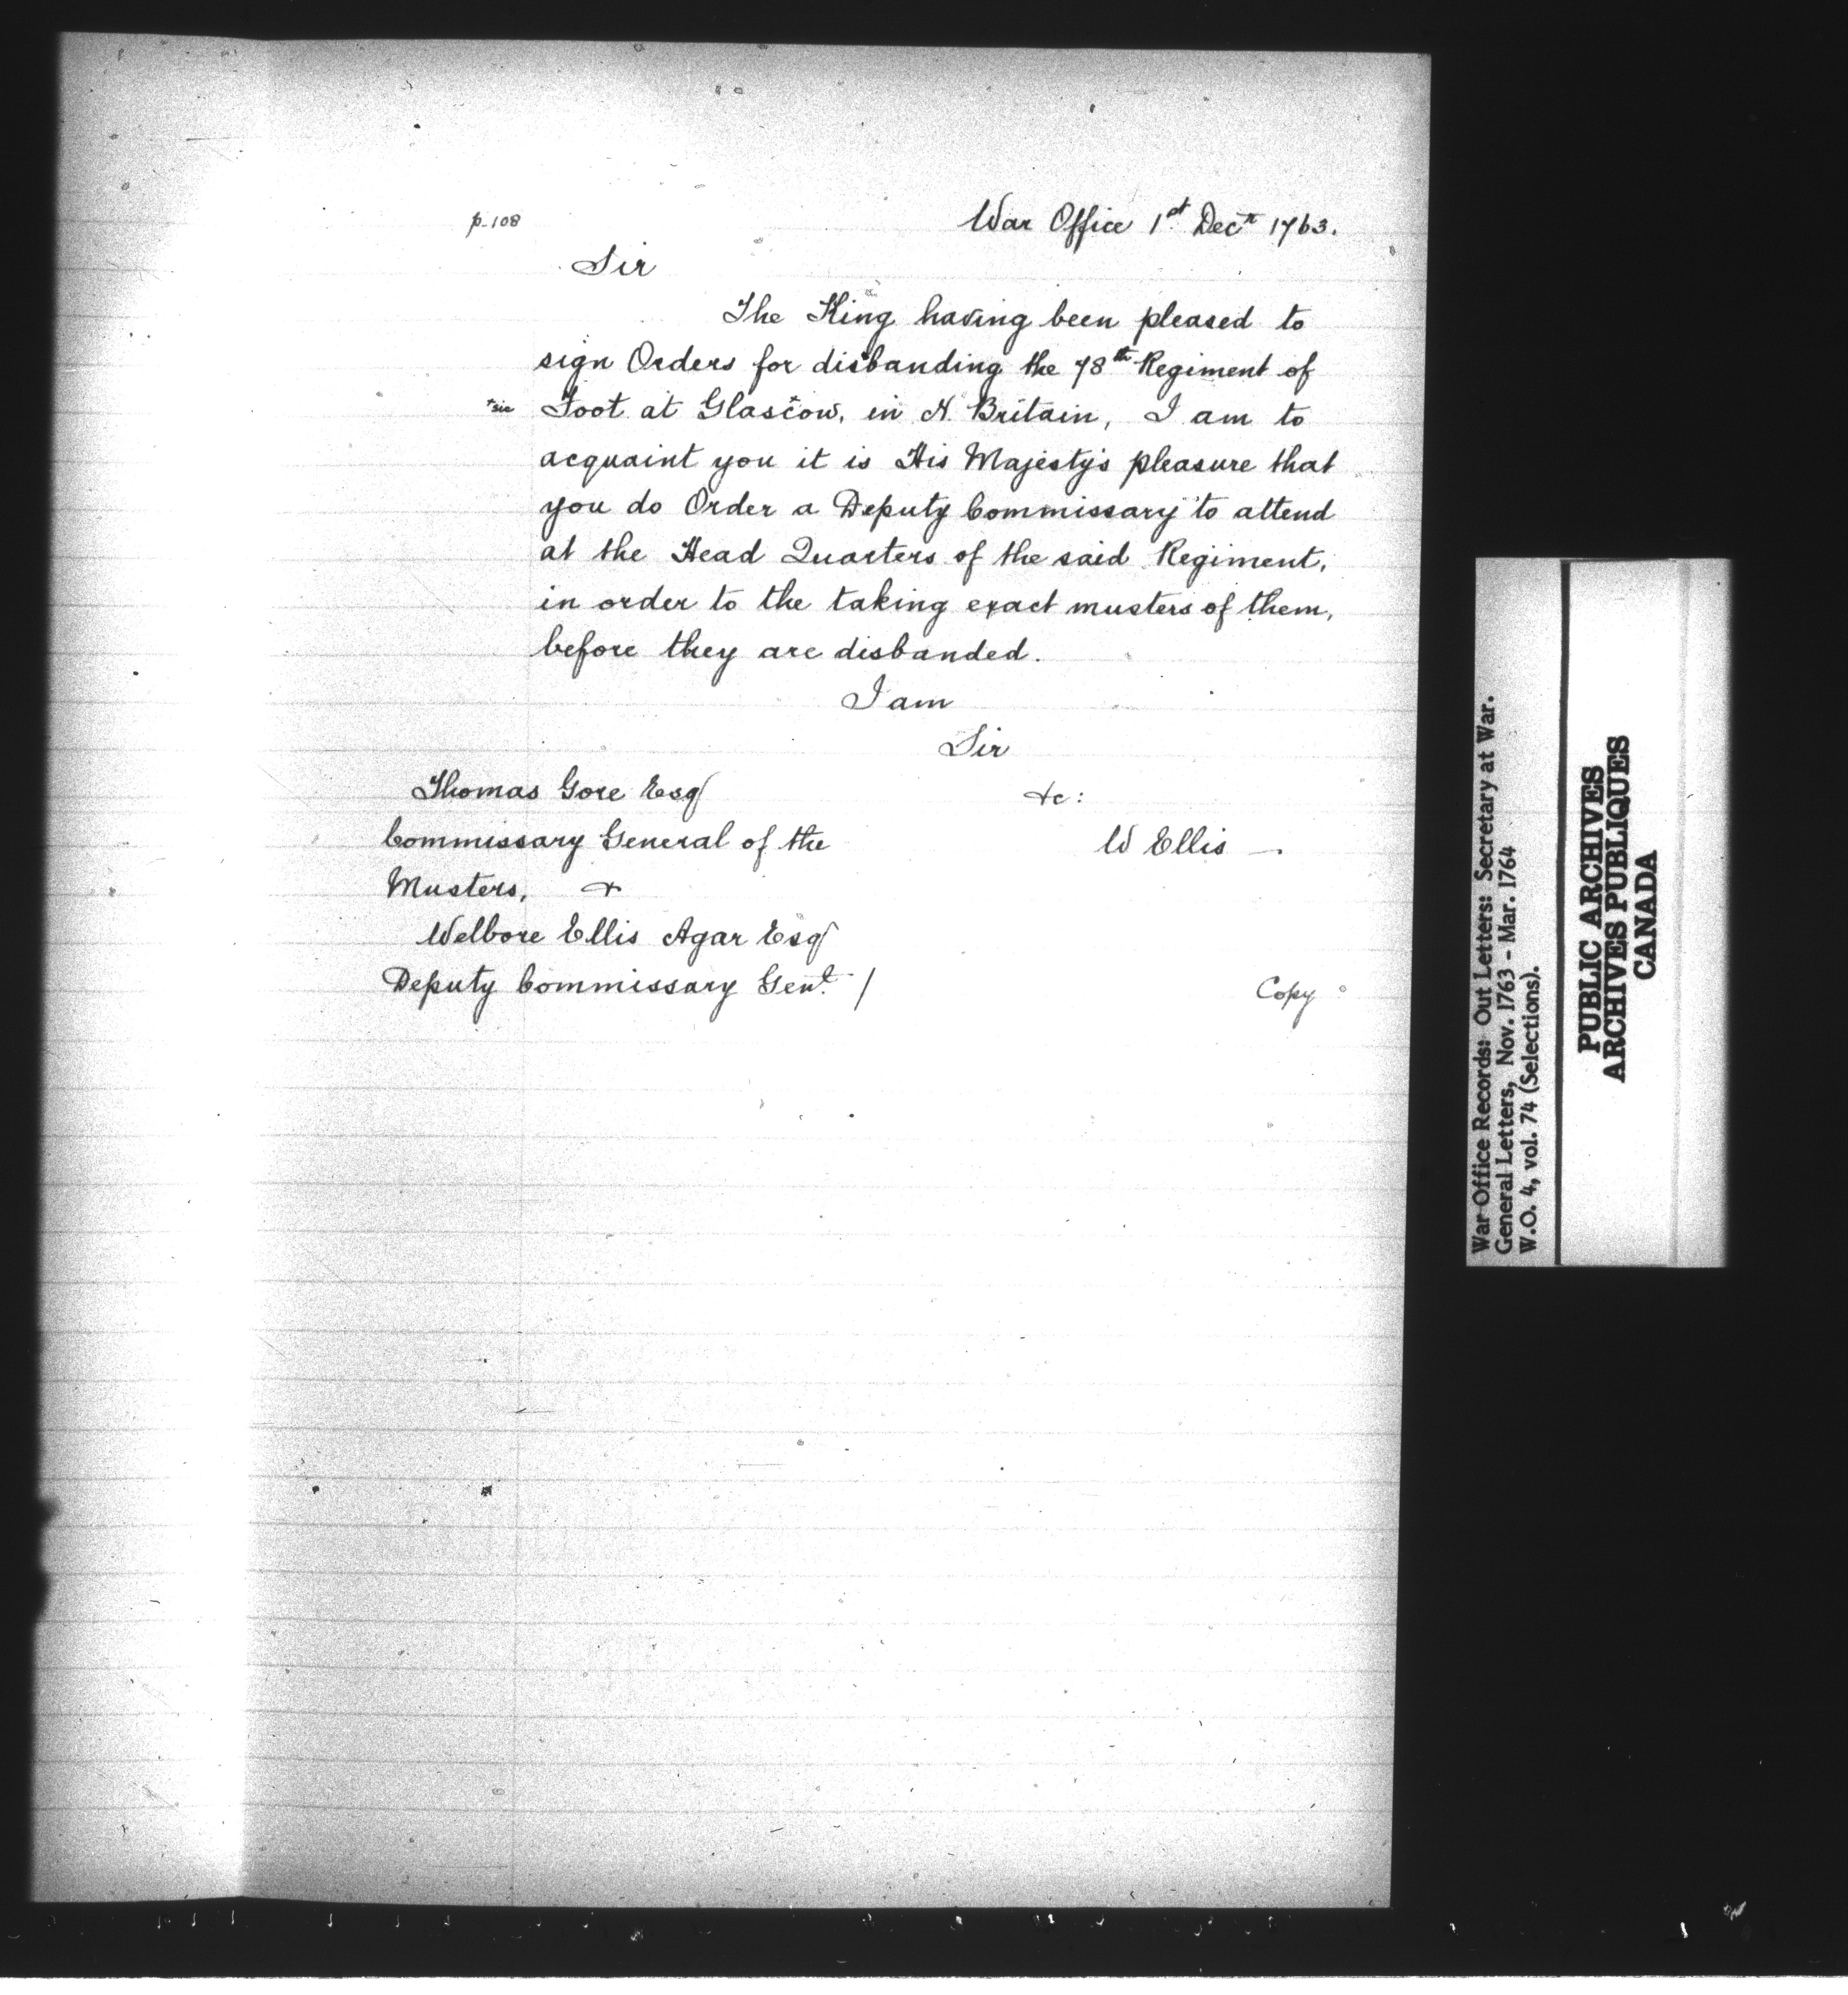 p. 108
War Office 1st Decr 1763.
Sir
The King having been pleased to
sign Orders for disbanding the 78th Regiment of
+sic Foot at Glascow, in N. Britain, I am to
acquaint you it is His Majesty's pleasure that
you do Order a Deputy Commissary to attend
at the Head Quarters of the said Regiment,
in order to the taking exact musters of them,
before they are disbanded.
I am
Sir
&c:
W Ellis —
Thomas Gore Esq
Commissary General of the
Musters, &
Welbore Ellis Agar Esq
Deputy Commissary Genl. /
Copy
War Office Records: Out Letters: Secretary at War.
General Letters, Nov. 1763 - Mar. 1764
W.O. 4, vol. 74 (Selections).
PUBLIC ARCHIVES
ARCHIVES PUBLIQUES
CANADA